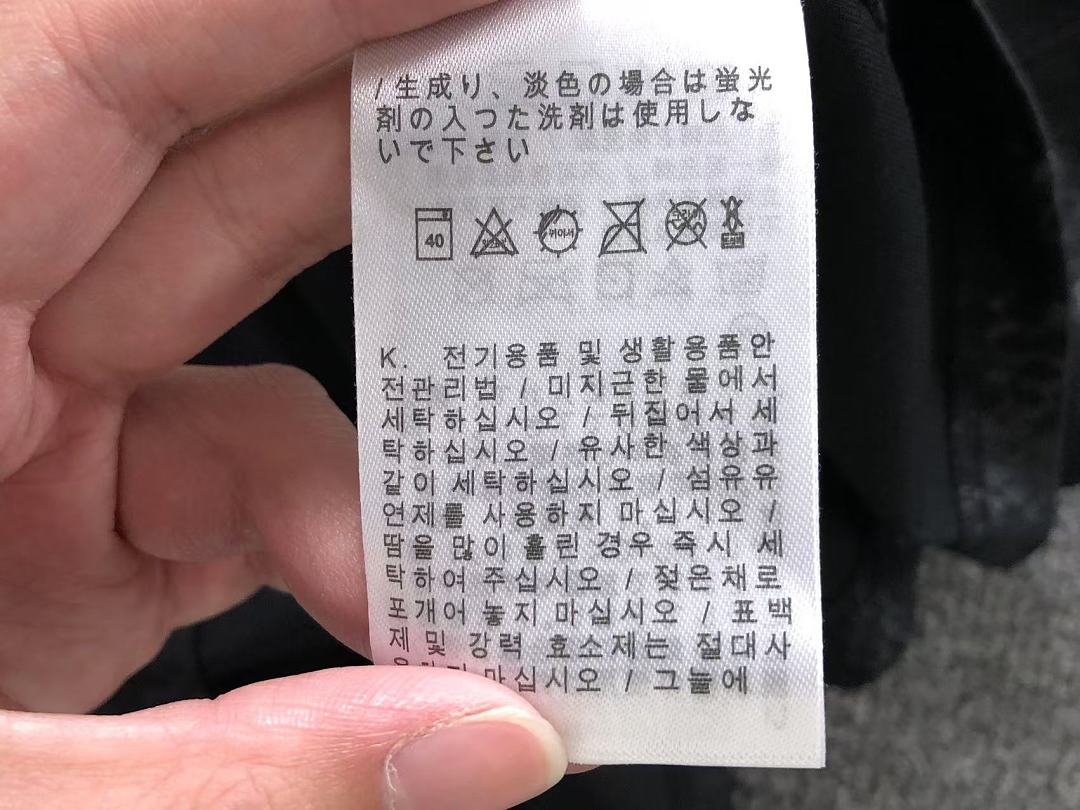 /生成り、淡色の場合は蛍光
剤の入つた洗剤は使用しな
いで下さい
40
뒤어서
K. 전기용품 및 생활용품안
전관리법 / 미지근한 물에서
세탁하십시오 / 뒤집어서 세
탁하십시오 / 유사한 색상과
같이 세탁하십시오 / 섬유유
연제를 사용하지 마십시오 /
땀을 많이 흘린 경우 즉시 세
탁하여 주십시오 / 젖은채로
포개어 놓지 마십시오 / 표백
제 및 강력 효소제는 절대사
마십시오 / 그늘에